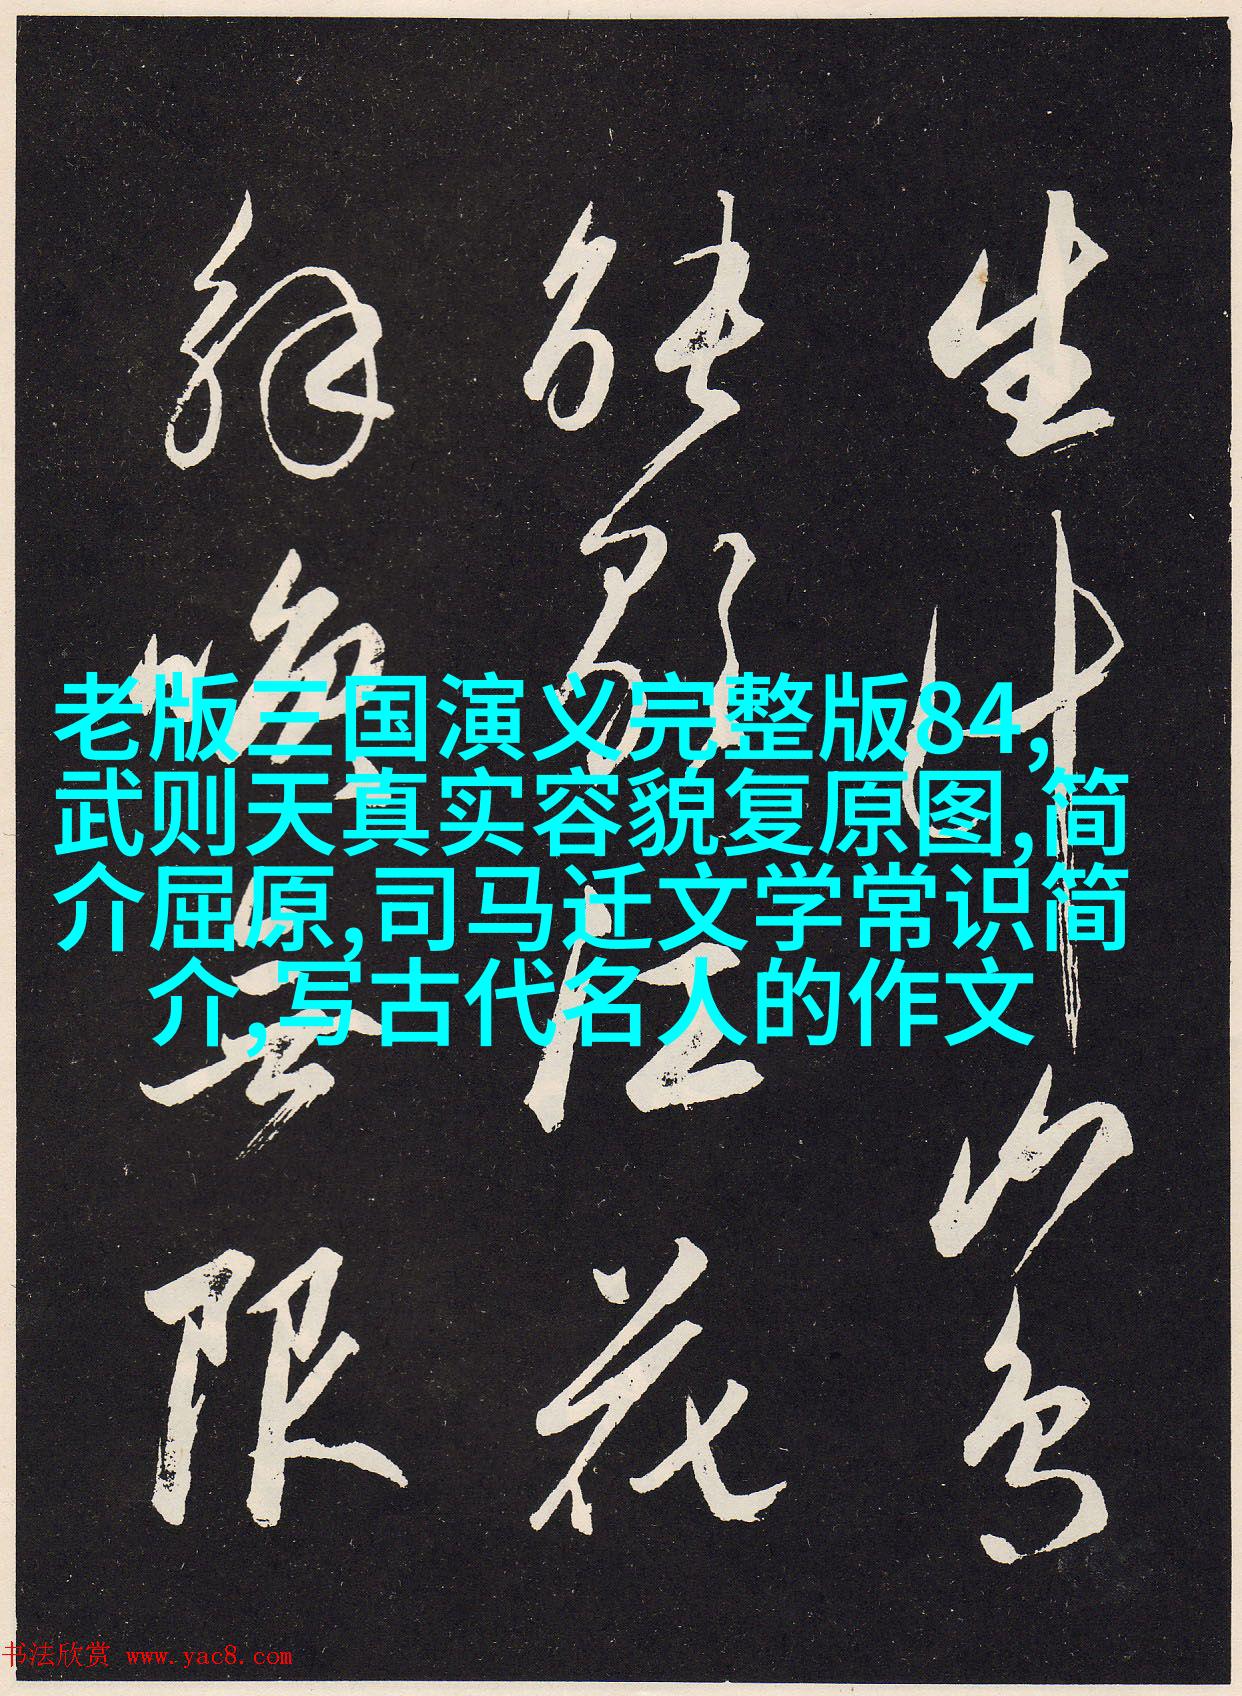 生計山鳥
能歌江花
解無限
老版三国演义完整版84,
武则天真实容貌复原图,简
介屈原,司马迁文学常识简
介,写古代名人的作文
书法欣赏 www.yac8.com